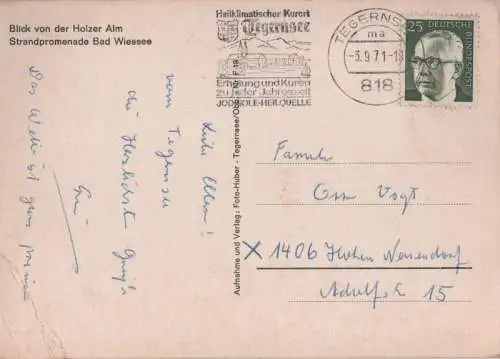 Blick von der Holzer Alm
Strandpromenade Bad Wiessee
Heilklimatischer Kurort
Tegernsee
Erholung und Kuren
zu jeder Jahreszeit
JODSOLE-HEILQUELLE
TEGERNSEE
ma
-3.9.71-18
818
25 DEUTSCHE BUNDESPOST
G. HEINEMANN
Liebe Eltern!
vom Tegernsee
die Herzlichsten Grüße
Das Wetter ist ganz prima
Aufnahme und Verlag: Foto-Huber - Tegernsee/Obb.
Familie
Otto Vogt
X 1406 Hohen Neuendorf
Adolfstr 15